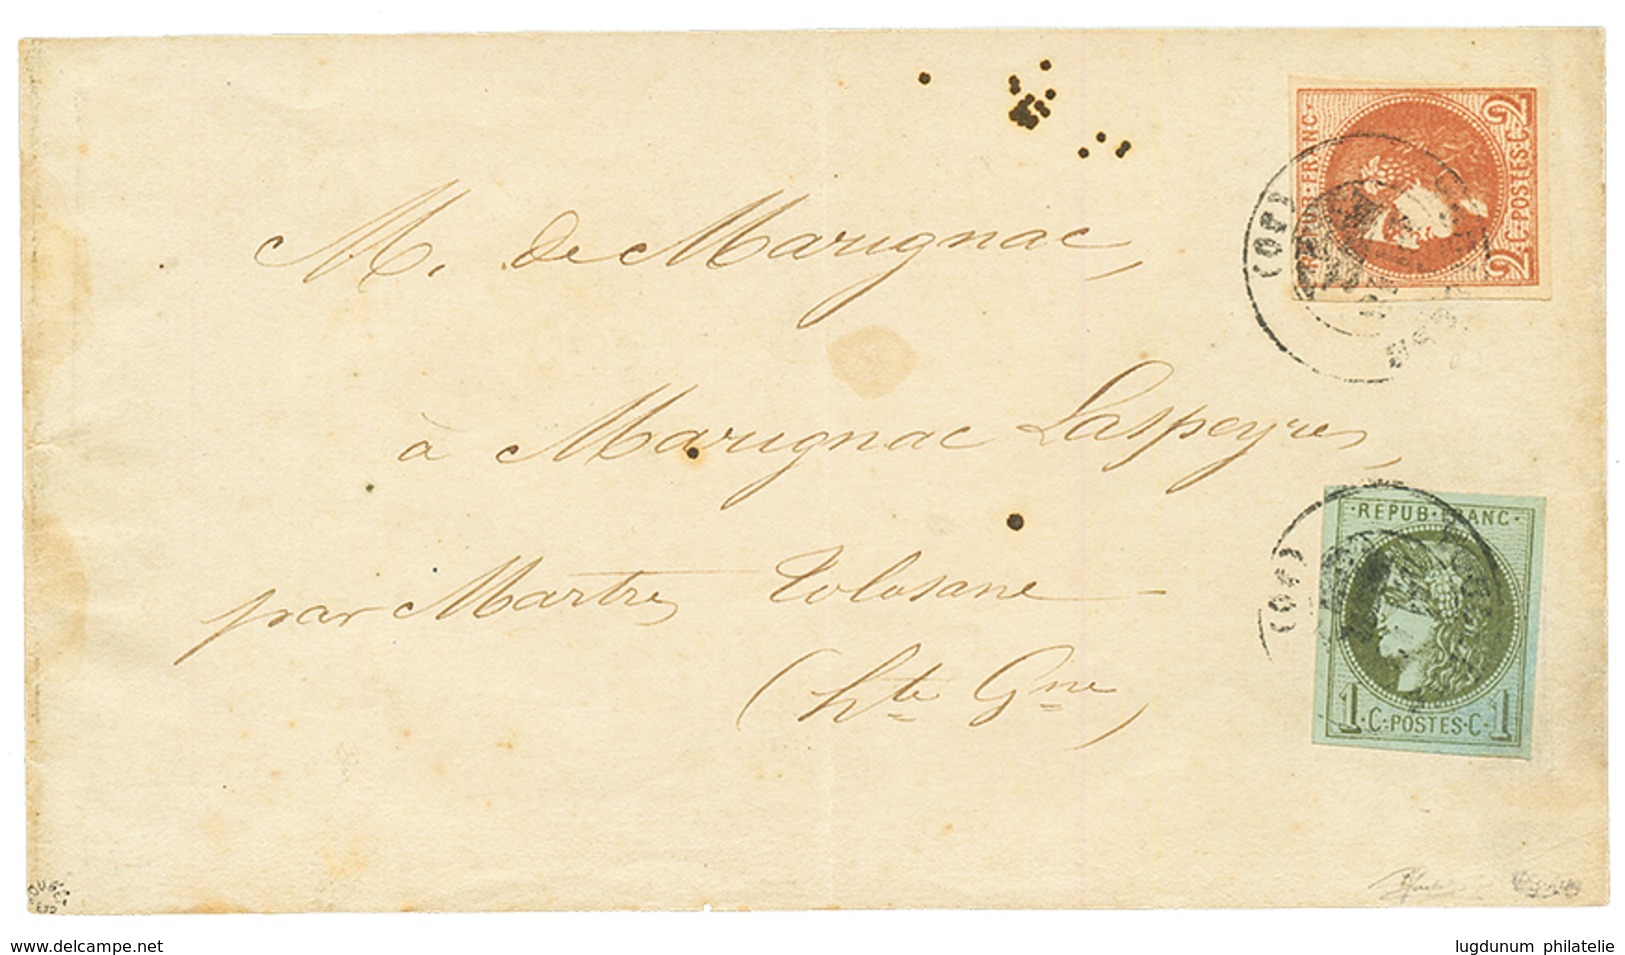 M. de Marignac,
à Marignac Laspeyres,
par Martres Tolosane -
(hte Gne)
REPUB·FRANC·
2·C·POSTES·C·2
·REPUB·FRANC·
1·C·POSTES·C·1
www.delcampe.net
lugdunum philatelie